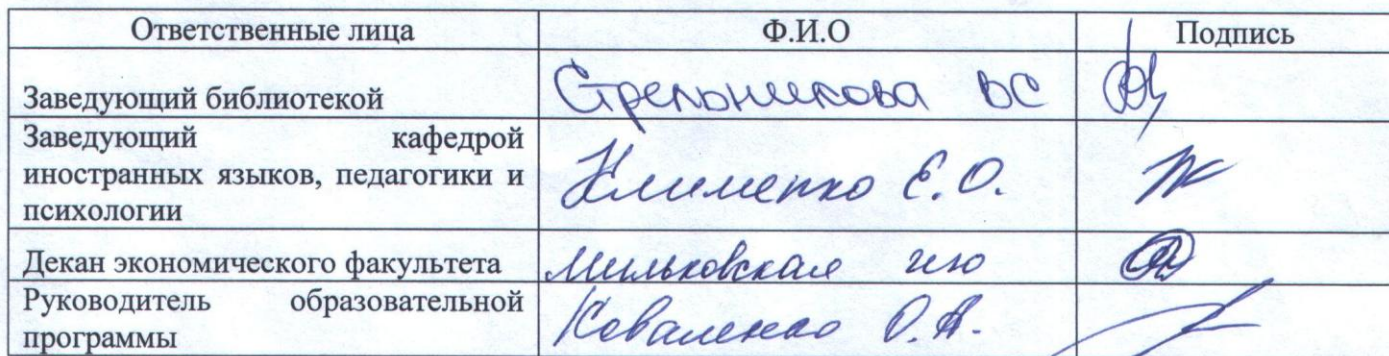 Ответственные лица Ф.И.О Подпись
Заведующий библиотекой Стрельникова ВС
Заведующий кафедрой
иностранных языков, педагогики и
психологии Клименко Е.О.
Декан экономического факультета Мильковская ию
Руководитель образовательной
программы Коваленко О.А.